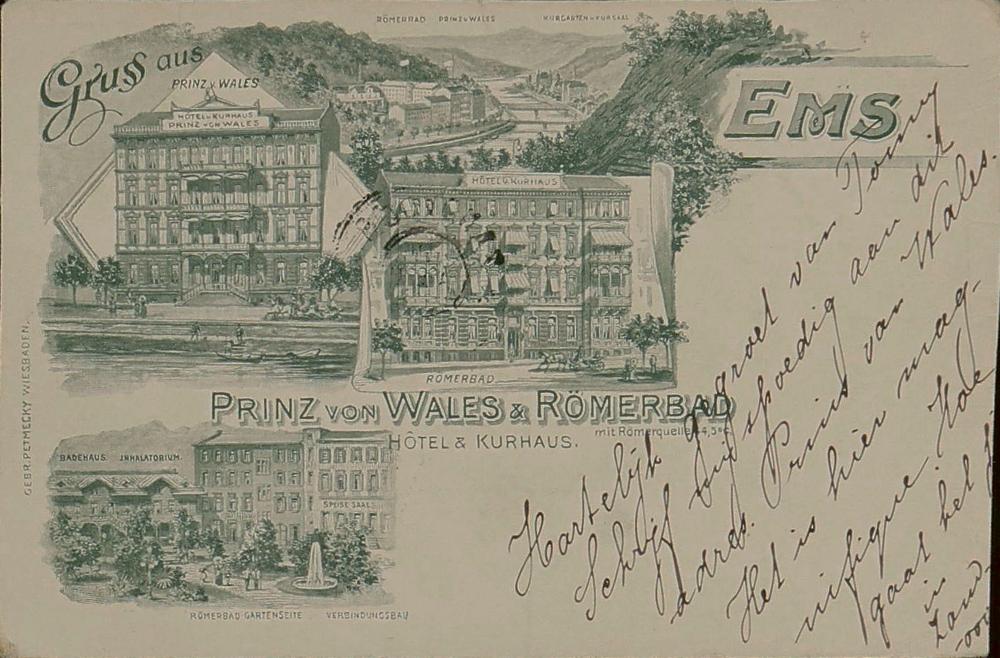 Gruss aus
RÖMERBAD PRINZ v. WALES KURGARTEN u. KURSAAL
EMS
PRINZ v. WALES
HÔTEL u. KURHAUS
PRINZ VON WALES
HÔTEL u. KURHAUS
RÖMERBAD
PRINZ VON WALES & RÖMERBAD
HÔTEL & KURHAUS.
mit Römerquelle 44,5°C
BADEHAUS. INHALATORIUM.
SPEISE SAAL
RÖMERBAD-GARTENSEITE VERBINDUNGSBAU
GEBR. PETMECKY WIESBADEN.
Hartelijk gegroet van Tonny
Schrijf eens spoedig aan dit
adres. Prins van Wales.
Het is hier mag-
nifique. Hoe
gaat het
in
Zand-
voort